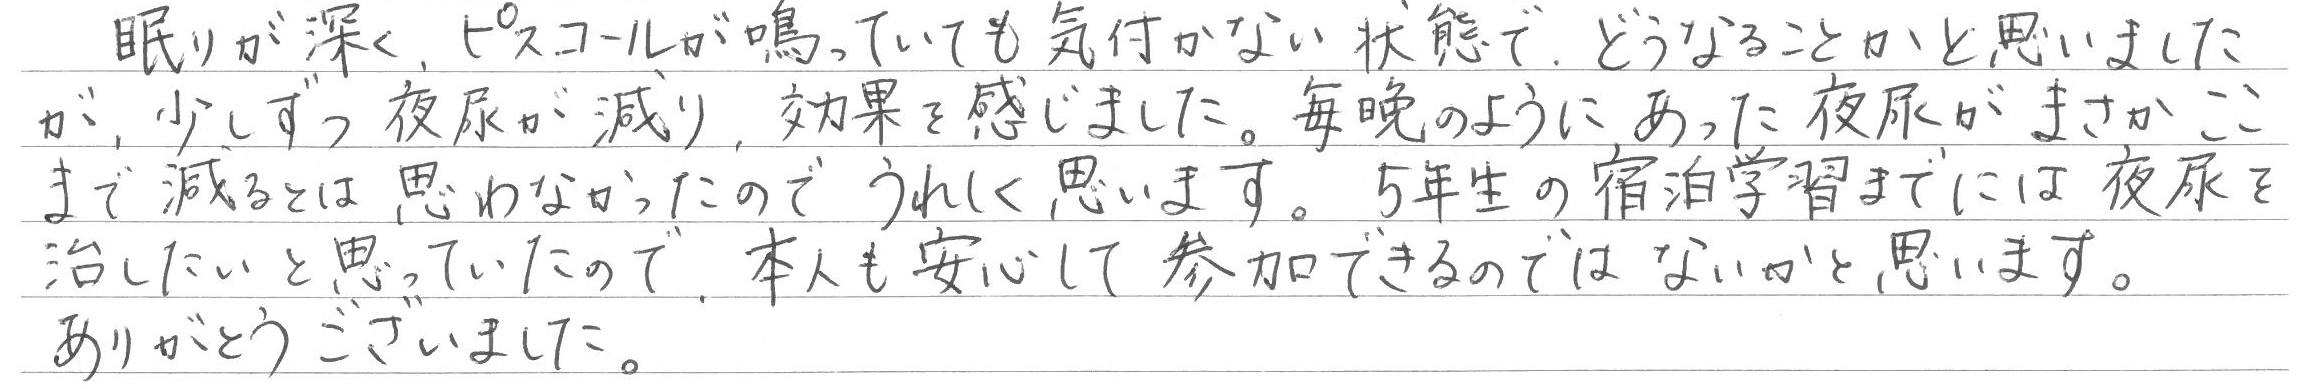 眠りが深く、ピスコールが鳴っていても気付かない状態で、どうなることかと思いました
が、少しずつ夜尿が減り、効果を感じました。毎晩のようにあった夜尿がまさかここ
まで減るとは思わなかったのでうれしく思います。5年生の宿泊学習までには夜尿を
治したいと思っていたので、本人も安心して参加できるのではないかと思います。
ありがとうございました。